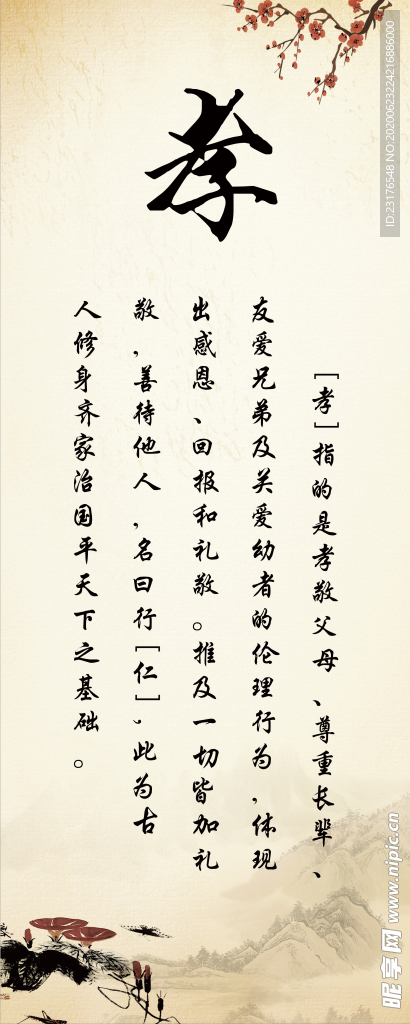 孝
［孝］指的是孝敬父母、尊重长辈、
友爱兄弟及关爱幼者的伦理行为，体现
出感恩、回报和礼敬。推及一切皆加礼
敬，善待他人，名曰行［仁］，此为古
人修身齐家治国平天下之基础。
ID:23176548 NO:20200623224216886000
昵享网 www.nipic.cn